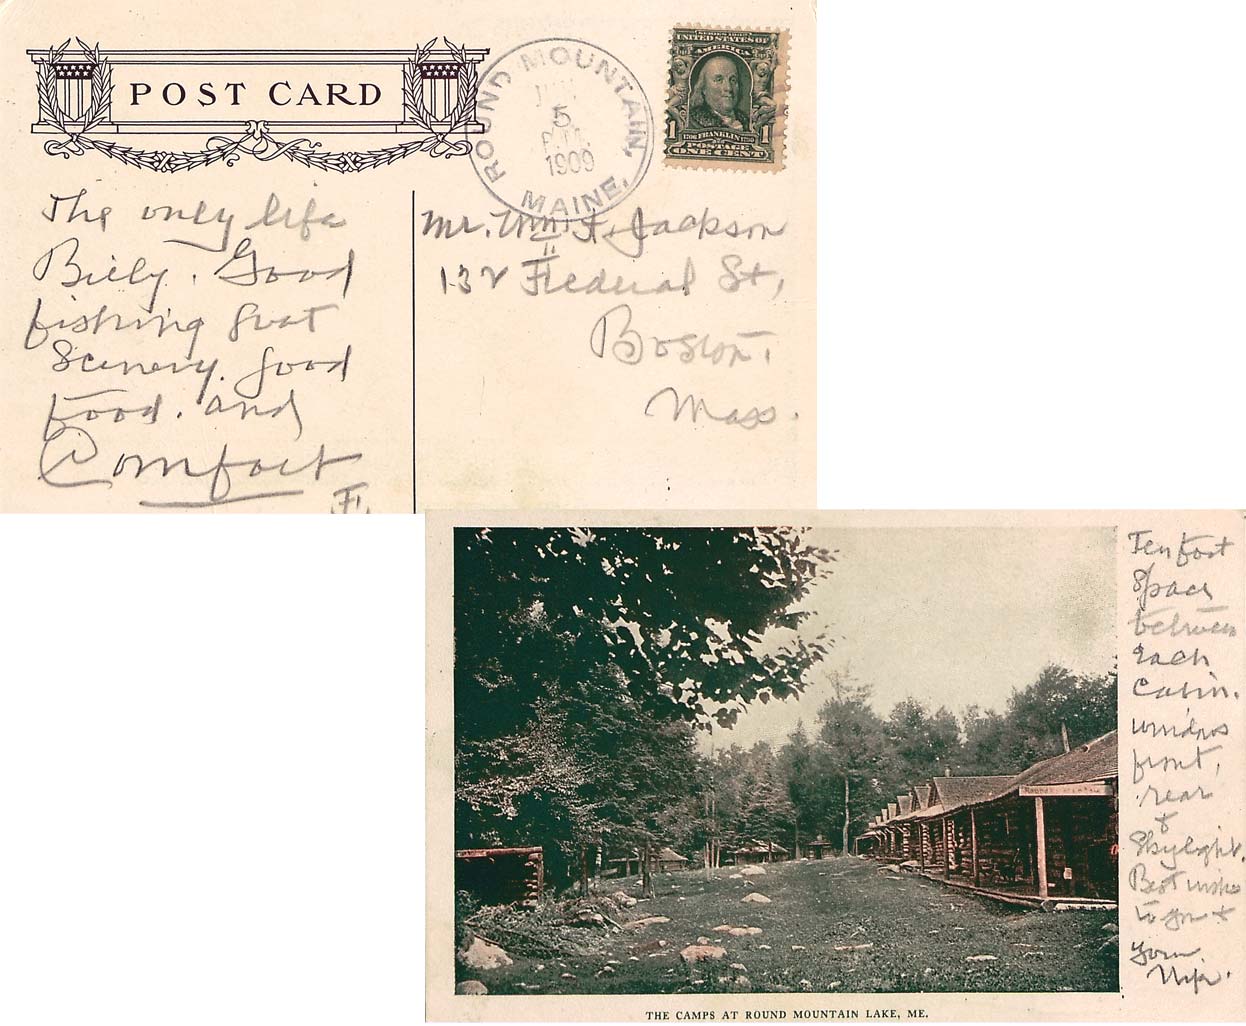 POST CARD
ROUND MOUNTAIN, MAINE.
5
P.M.
1909
SERIES 1902
UNITED STATES OF
AMERICA
1 FRANKLIN 1
POSTAGE
ONE CENT
The only life
Billy. Good
fishing Great
Scenery. Good
food. and
Comfort
F.
Mr. Wm. F. Jackson
132 Federal St,
Boston.
Mass.
Ten foot
space
between
each
Cabin.
windows
front,
rear
&
Skylight.
Best wishes
to you &
your
Wife.
THE CAMPS AT ROUND MOUNTAIN LAKE, ME.